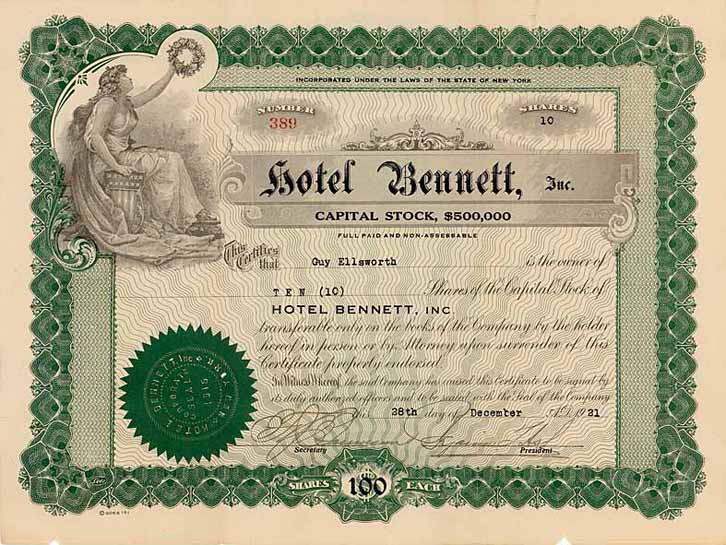 INCORPORATED UNDER THE LAWS OF THE STATE OF NEW YORK
NUMBER
389
SHARES
10
Hotel Bennett, Inc.
CAPITAL STOCK, $500,000
FULL PAID AND NON-ASSESSABLE
This Certifies that Guy Ellsworth is the owner of
TEN (10) Shares of the Capital Stock of
HOTEL BENNETT, INC.
transferable only on the books of the Company by the holder
hereof in person or by Attorney upon surrender of this
Certificate properly endorsed.
In Witness Whereof, the said Company has caused this Certificate to be signed by
its duly authorized officers and to be sealed with the Seal of the Company
this 28th day of December A.D. 1921
Secretary
President
SHARES 100 EACH